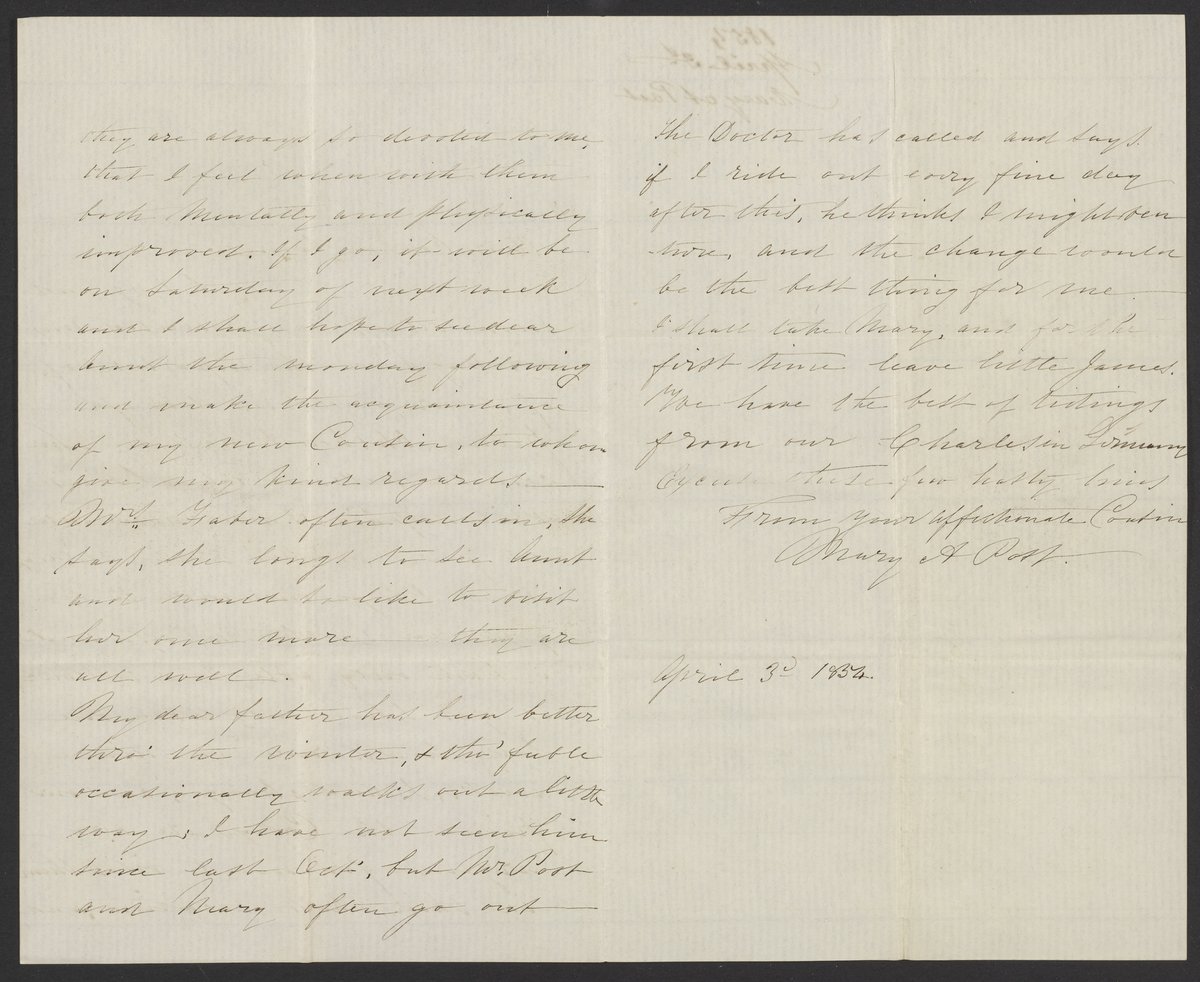 they are always so devoted to me,
that I feel when with them
both Mentally and physically
improved. If I go, it will be
on Saturday of next week
and I shall hope to see dear
Aunt the monday following
and make the acquaintance
of my new Cousin, to whom
give my kind regards.
Mrs. Faber often calls in, she
says, she longs to see Aunt
and would so like to visit
her once more they are
all well.
My dear father has been better
thro' the winter, & tho' feeble
occasionally walks out a little
way; I have not seen him
since last Oct., but Mr. Post
and Mary often go out
The Doctor has called and says.
if I ride out every fine day
after this, he thinks I might ven
ture, and the change would
be the best thing for me
I shall take Mary, and for the
first time leave little James.
We have the best of tidings
from our Charles in Germany
Excuse these few hasty lines
From your affectionate Cousin
Mary A Post.
April 3d 1854.